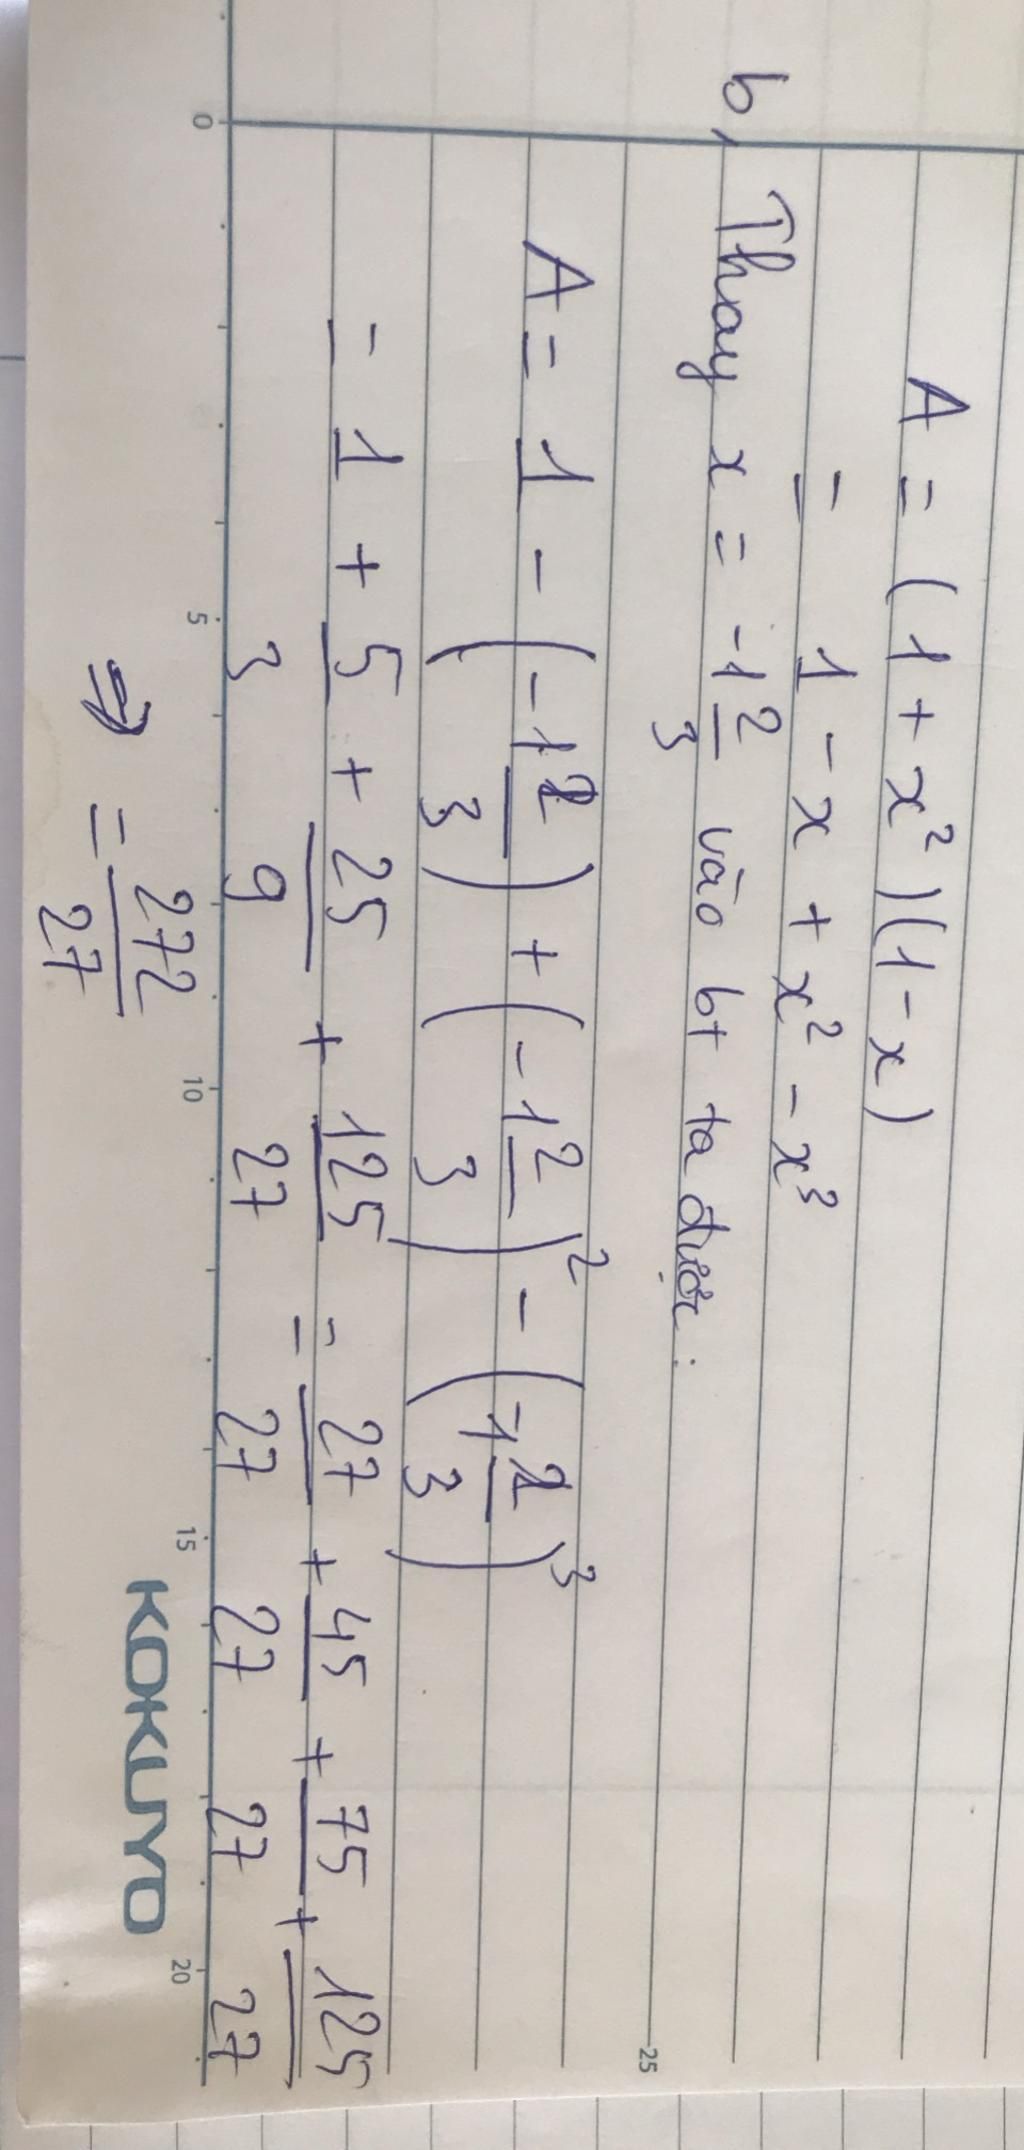 A = (1 + x²)(1 - x)
= 1 - x + x² - x³
b, Thay x = -1 2/3 vào bt ta được:
A = 1 - (-1 2/3) + (-1 2/3)² - (-1 2/3)³
= 1 + 5/3 + 25/9 + 125/27 = 27/27 + 45/27 + 75/27 + 125/27
⇒ = 272/27
0 5 10 15 20
25
KOKUYO